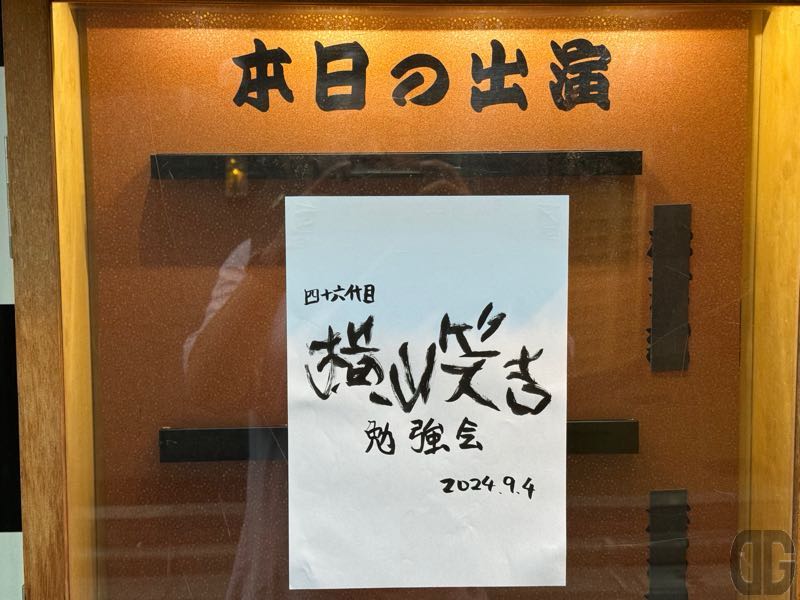 本日の出演
四十六代目
横山笑吉
勉強会
2024.9.4